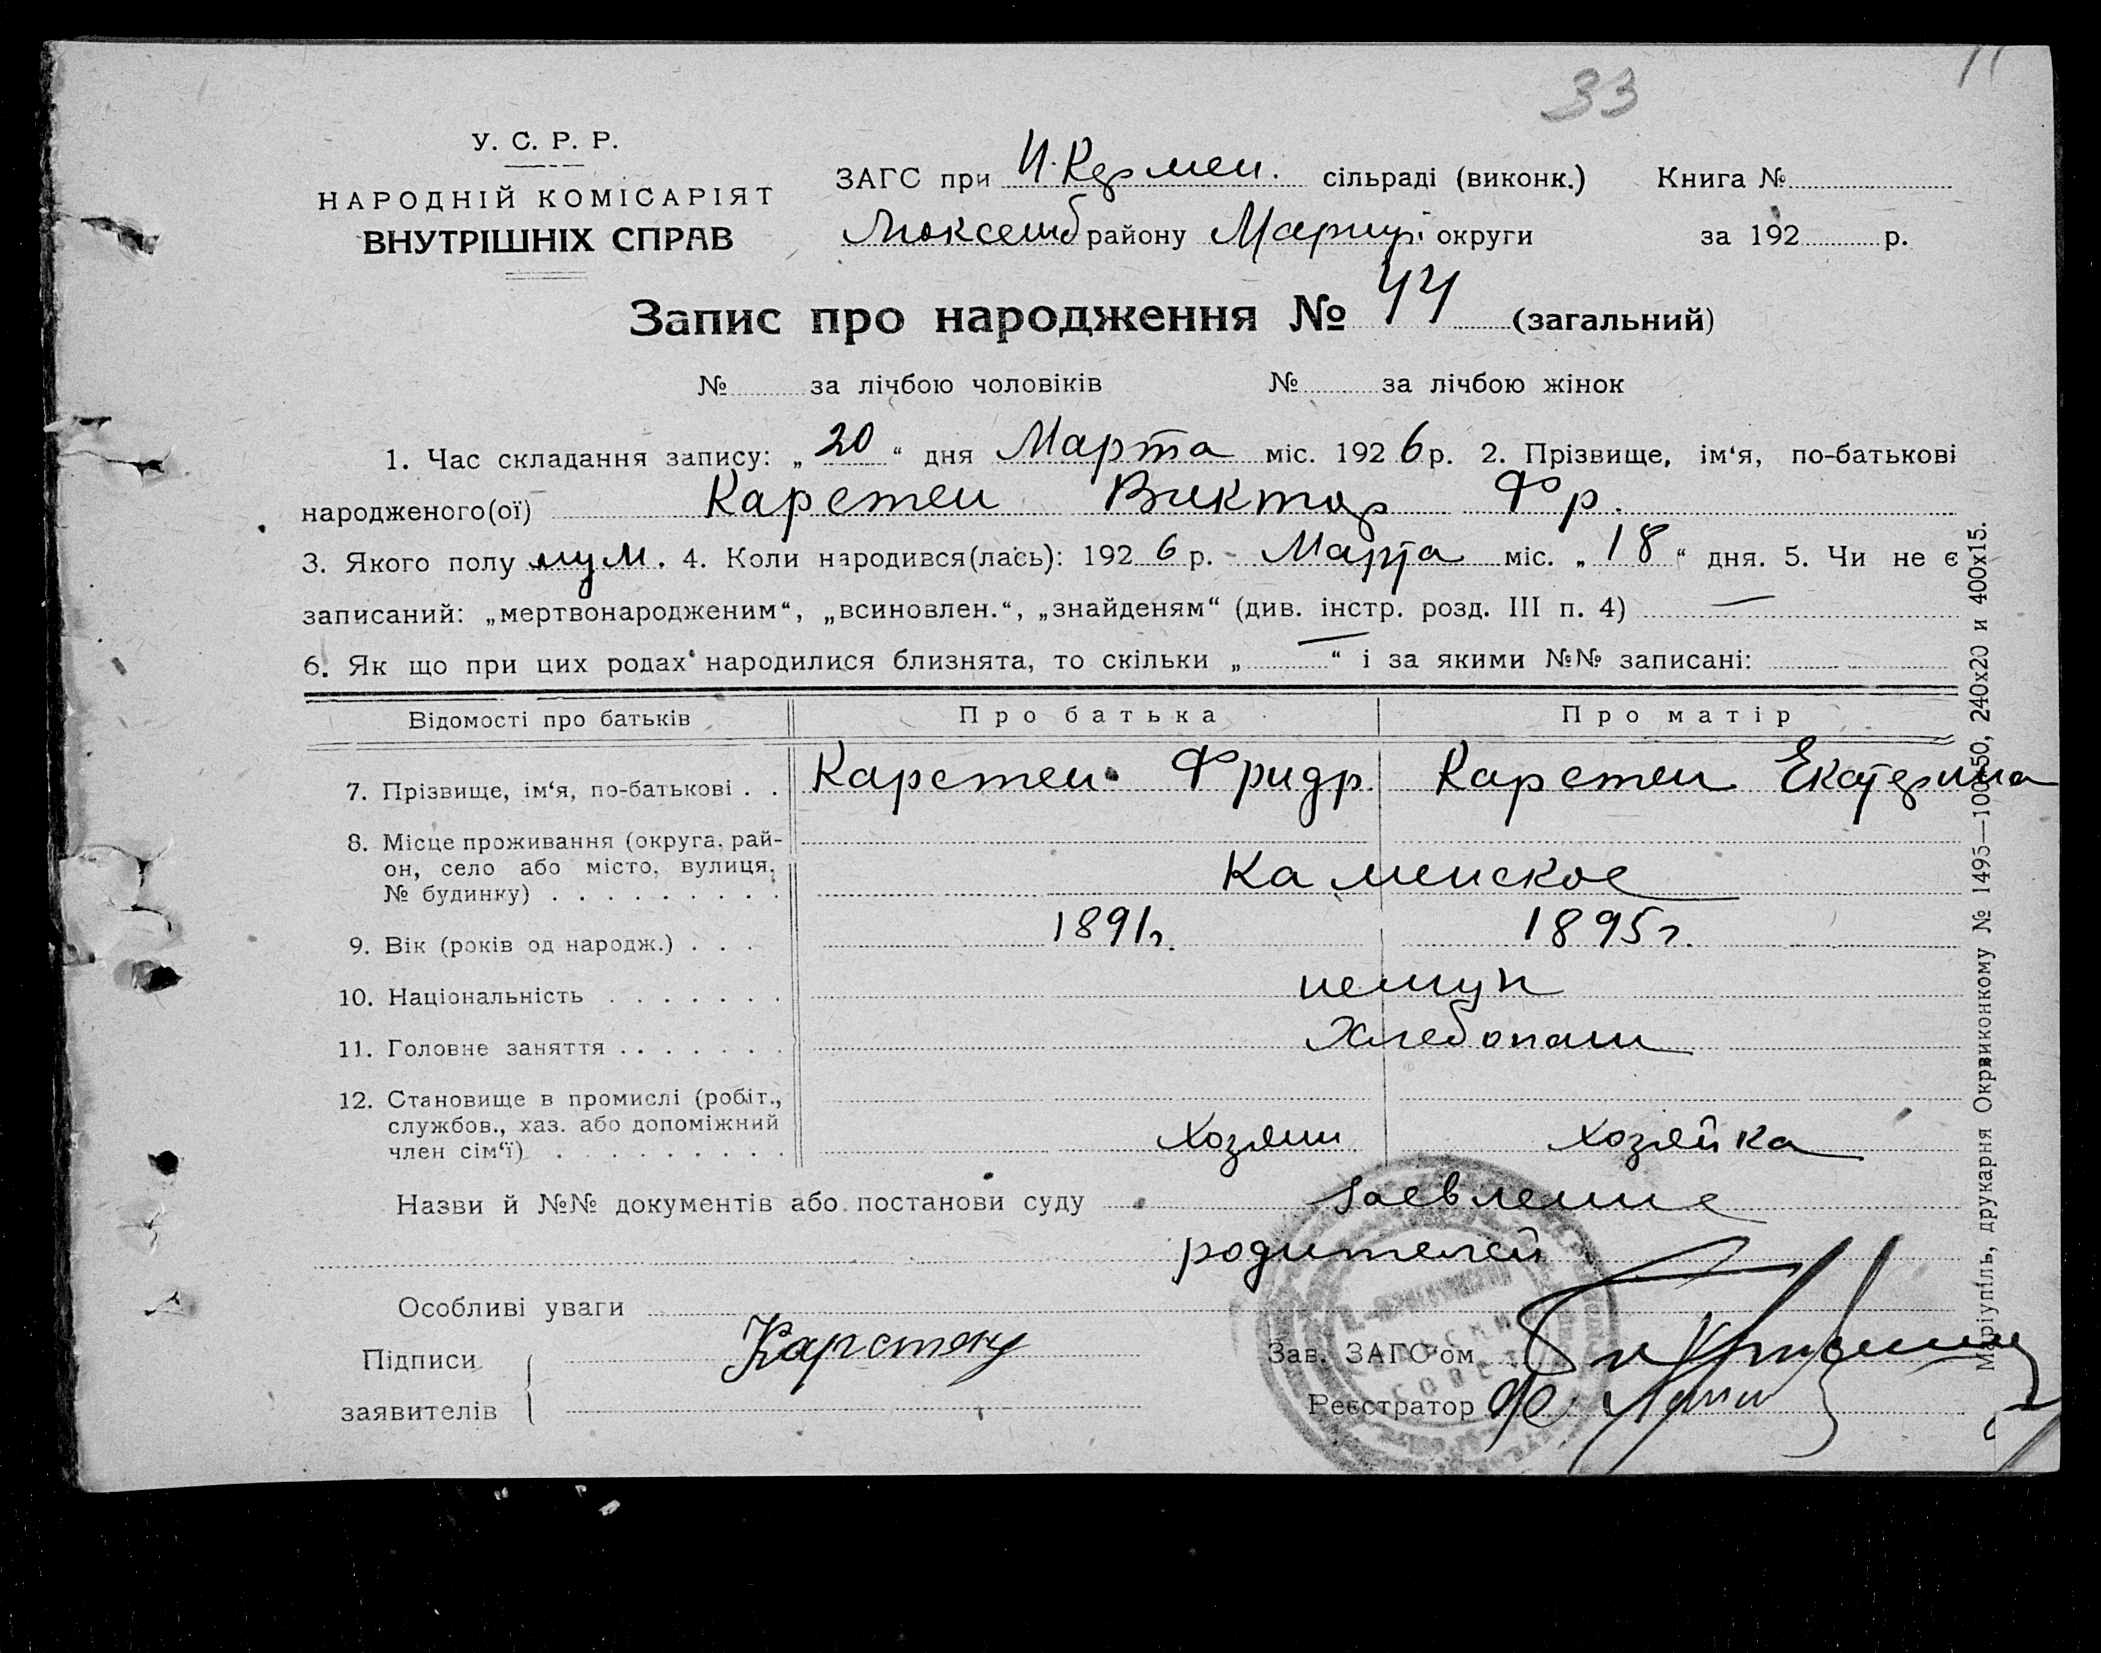 33
У. С. Р. Р.
НАРОДНІЙ КОМІСАРІЯТ
ВНУТРІШНІХ СПРАВ
ЗАГС при И. Кермен. сільраді (виконк.) Книга №
Люксемб району Мариуп. округи за 192 р.
Запис про народження № 44 (загальний)
№ за лічбою чоловіків № за лічбою жінок
1. Час складання запису: „ 20 “ дня Марта міс. 192 6 р. 2. Прізвище, ім‘я, по-батькові
народженого(ої) Карстен Виктор Фр.
3. Якого полу муж. 4. Коли народився(лась): 192 6 р. - Марта міс. „ 18 “ дня. 5. Чи не є
записаний: „мертвонародженим“, „всиновлен.“, „знайденям“ (див. інстр. розд. III п. 4) —
6. Як що при цих родах народилися близнята, то скільки „ — “ і за якими №№ записані:
Відомості про батьків Про батька Про матір
7. Прізвище, ім‘я, по-батькові . . Карстен Фридр. Карстен Екатерина
8. Місце проживання (округа, рай-
он, село або місто, вулиця,
№ будинку) . . . . . . . . . Каменское
9. Вік (років од народж.) . . . 1891г. 1895г.
10. Національність . . . . . . . немцы
11. Головне заняття . . . . . . . Хлебопаш
12. Становище в промислі (робіт.,
службов., хаз. або допоміжний
член сім‘ї) . . . . . . . . . Хозяин Хозяйка
Назви й №№ документів або постанови суду Заевление
родителей
Особливі уваги
Підписи Карстенъ
заявителів
Зав. ЗАГС‘ом
Реєстратор
Маріупіль, друкарня Окрвиконкому № 1495—100х50, 240х20 и 400х15.